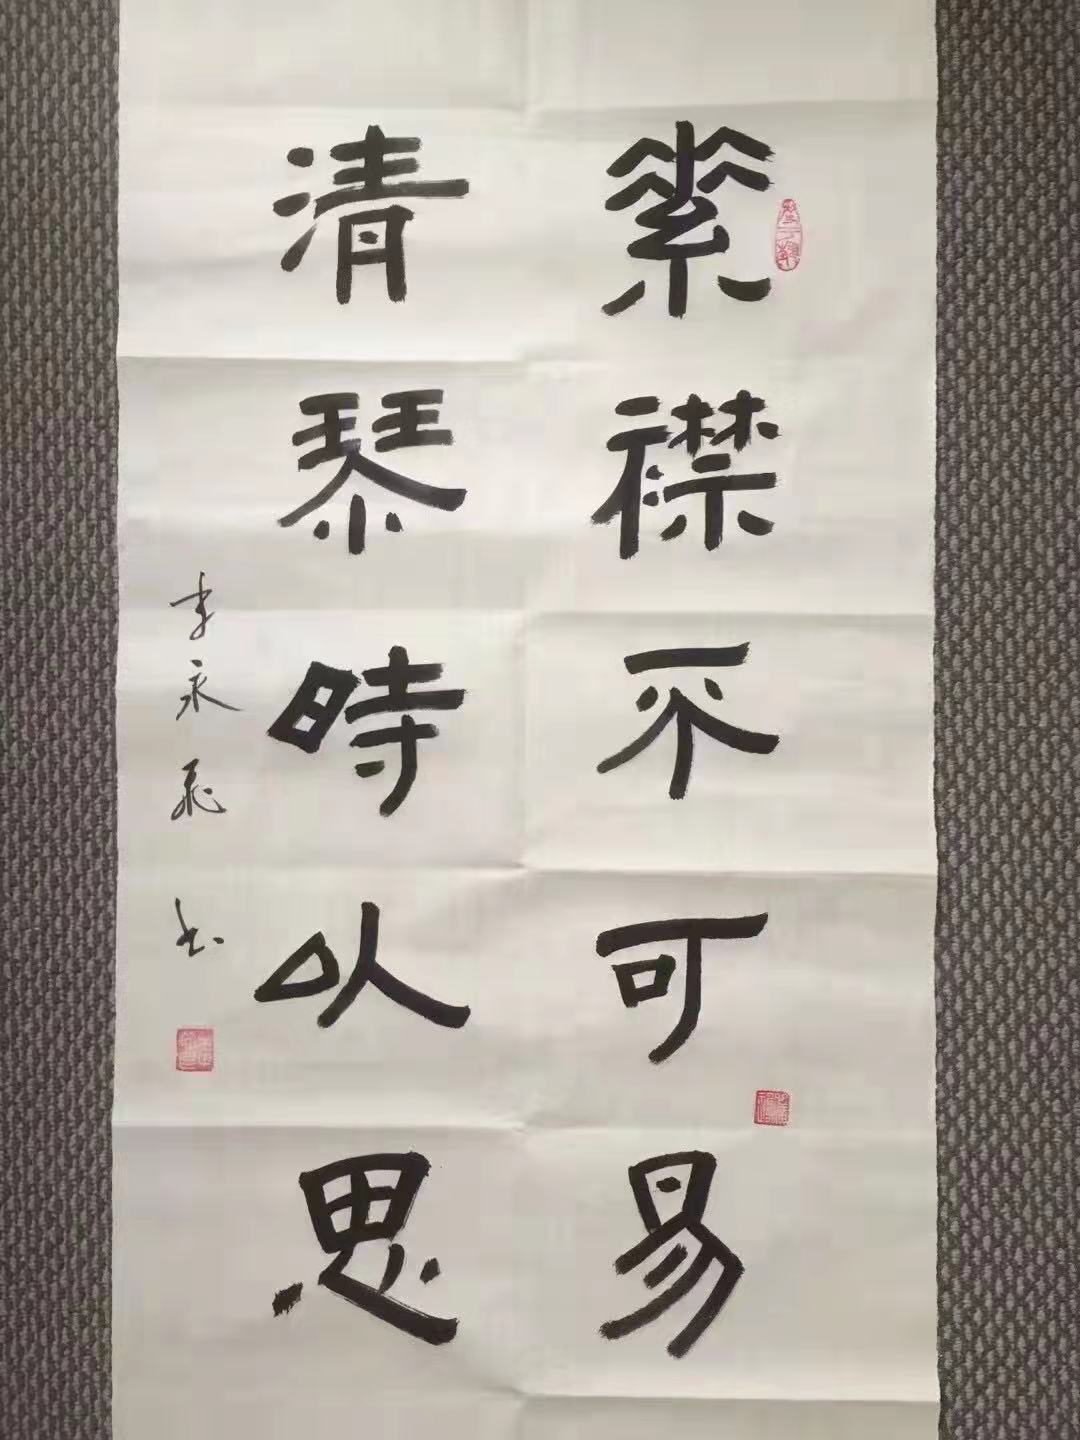 素襟不可易
清琴時以思
李永飛书